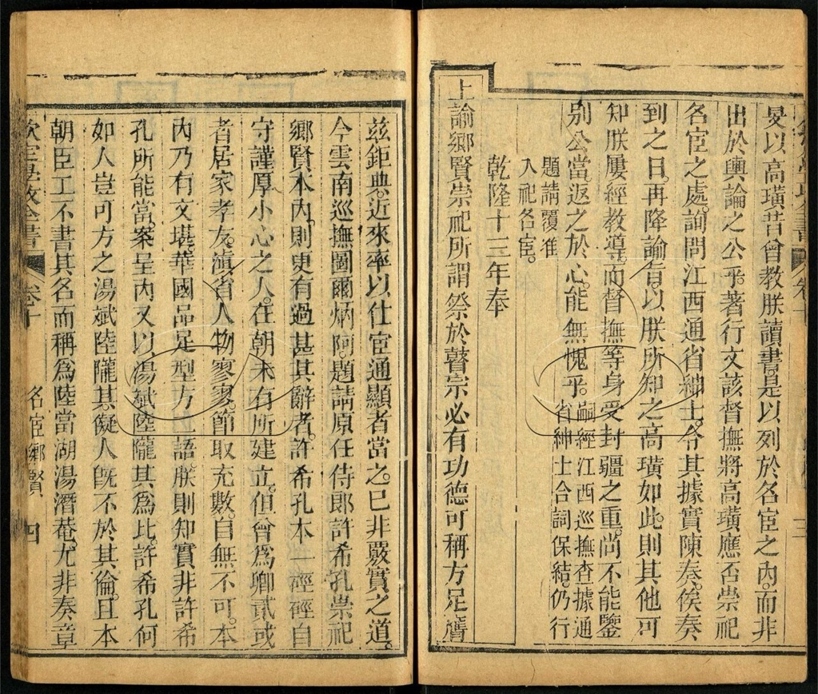 旻以高璜昔曾教朕讀書是以列於名宦之內而非
出於輿論之公乎著行文該督撫將高璜應否崇祀
名宦之處詢問江西通省紳士令其據實陳奏俟奏
到之日再降諭旨以朕所知之高璜如此則其他可
知朕屢經教導而督撫等身受封疆之重尚不能鑒
別公當返之於心能無愧乎嗣經江西巡撫查據通
省紳士合詞保結仍行
題請覆准
入祀名宦
乾隆十三年奉
上諭鄉賢崇祀所謂祭於瞽宗必有功德可稱方足膺
茲鉅典近來率以仕宦通顯者當之已非覈實之道
今雲南巡撫圖爾炳阿題請原任侍郎許希孔崇祀
鄉賢本內則更有過甚其辭者許希孔本一硜硜自
守謹厚小心之人在朝未有所建立但曾為卿貳或
者居家孝友滇省人物寥寥節取充數自無不可本
內乃有文堪華國品足型方一語朕則知實非許希
孔所能當案呈內又以湯斌陸隴其為比許希孔何
如人豈可方之湯斌陸隴其儗人既不於其倫且本
朝臣工不書其名而稱為陸當湖湯潛菴尤非奏章
欽定學政全書 卷十 名宦鄉賢 四